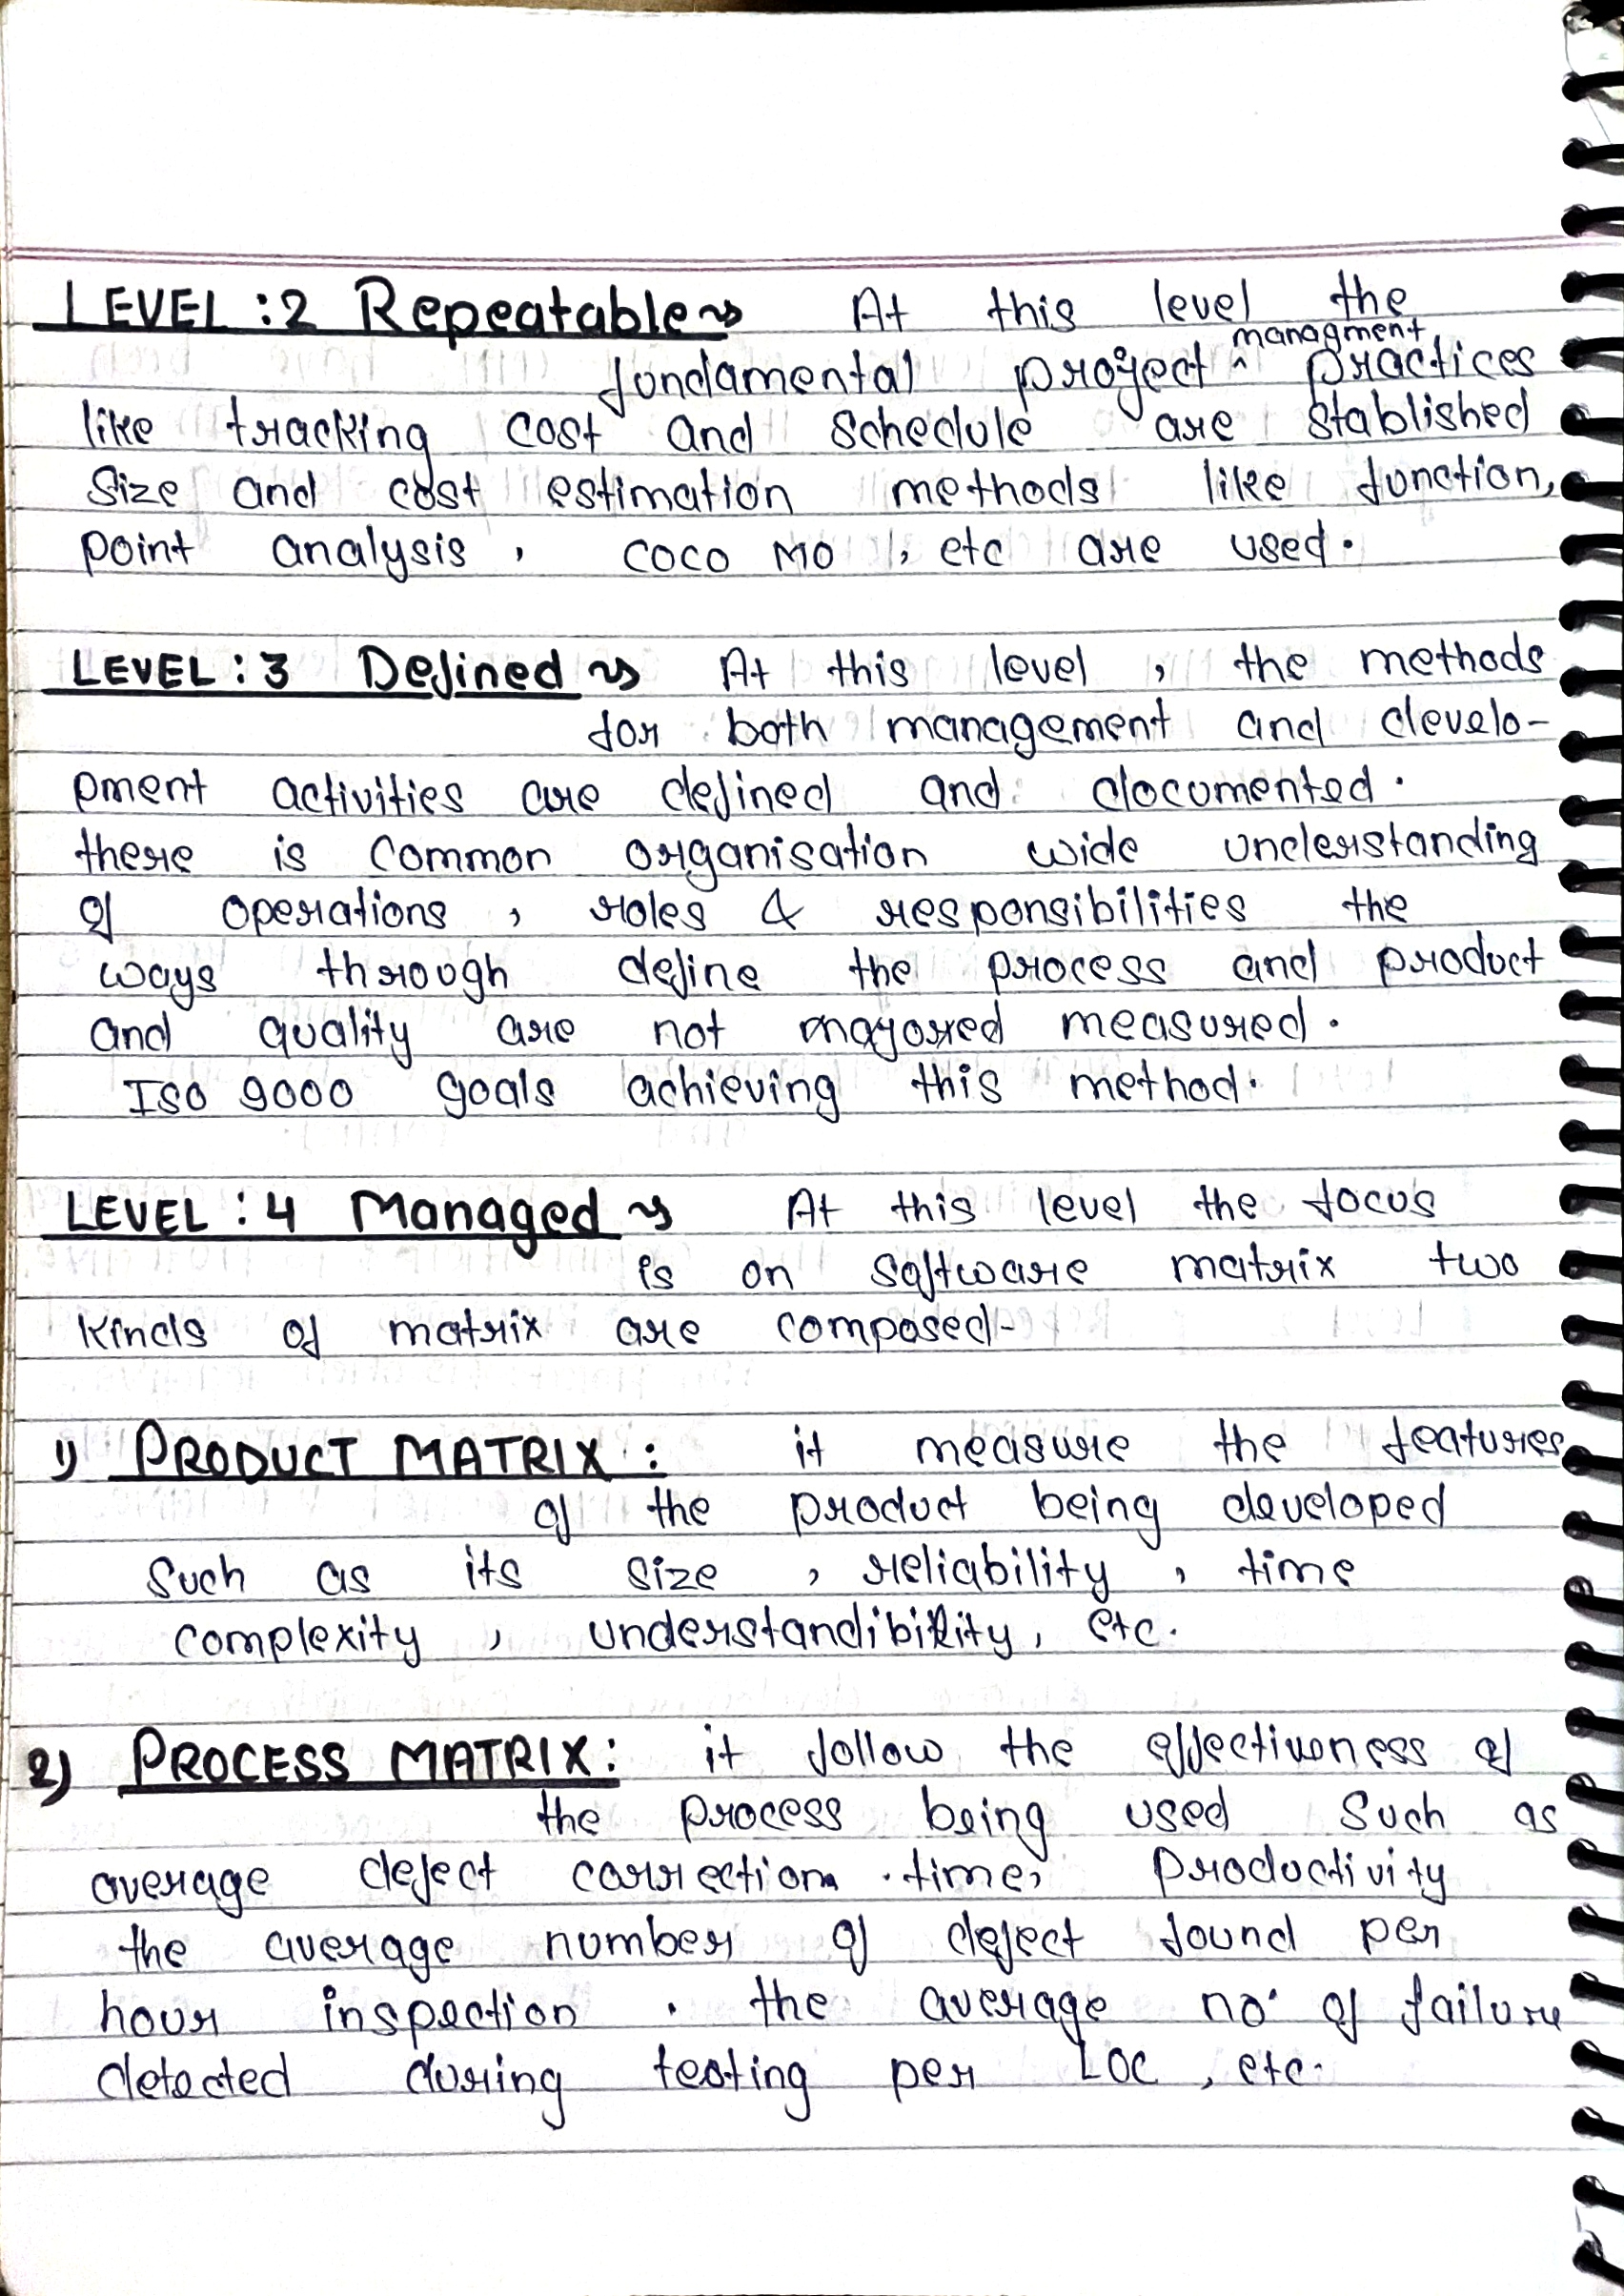 LEVEL : 2 Repeatable ⇝ At this level the
fundamental project ^ managment practices
like tracking cost and schedule are stablished
Size and cost estimation methods like function,
point analysis , COCO MO , etc are used.
LEVEL : 3 Defined ⇝ At this level , the methods
for both management and develo-
pment activities are defined and documented.
there is Common organisation wide understanding
of operations , roles & responsibilities the
ways through define the process and product
and quality are not measured.
ISO 9000 goals achieving this method.
LEVEL : 4 Managed ⇝ At this level the focus
is on Software matrix two
kinds of matrix are composed-
1) PRODUCT MATRIX : it measure the features
of the product being developed
Such as its size , reliability , time
complexity , understandibility, etc.
2) PROCESS MATRIX : it follow the effectiveness of
the process being used such as
average defect correction time, Productivity
the average number of defect found per
hour inspection . the average no. of failure
detected during testing per LOC , etc.